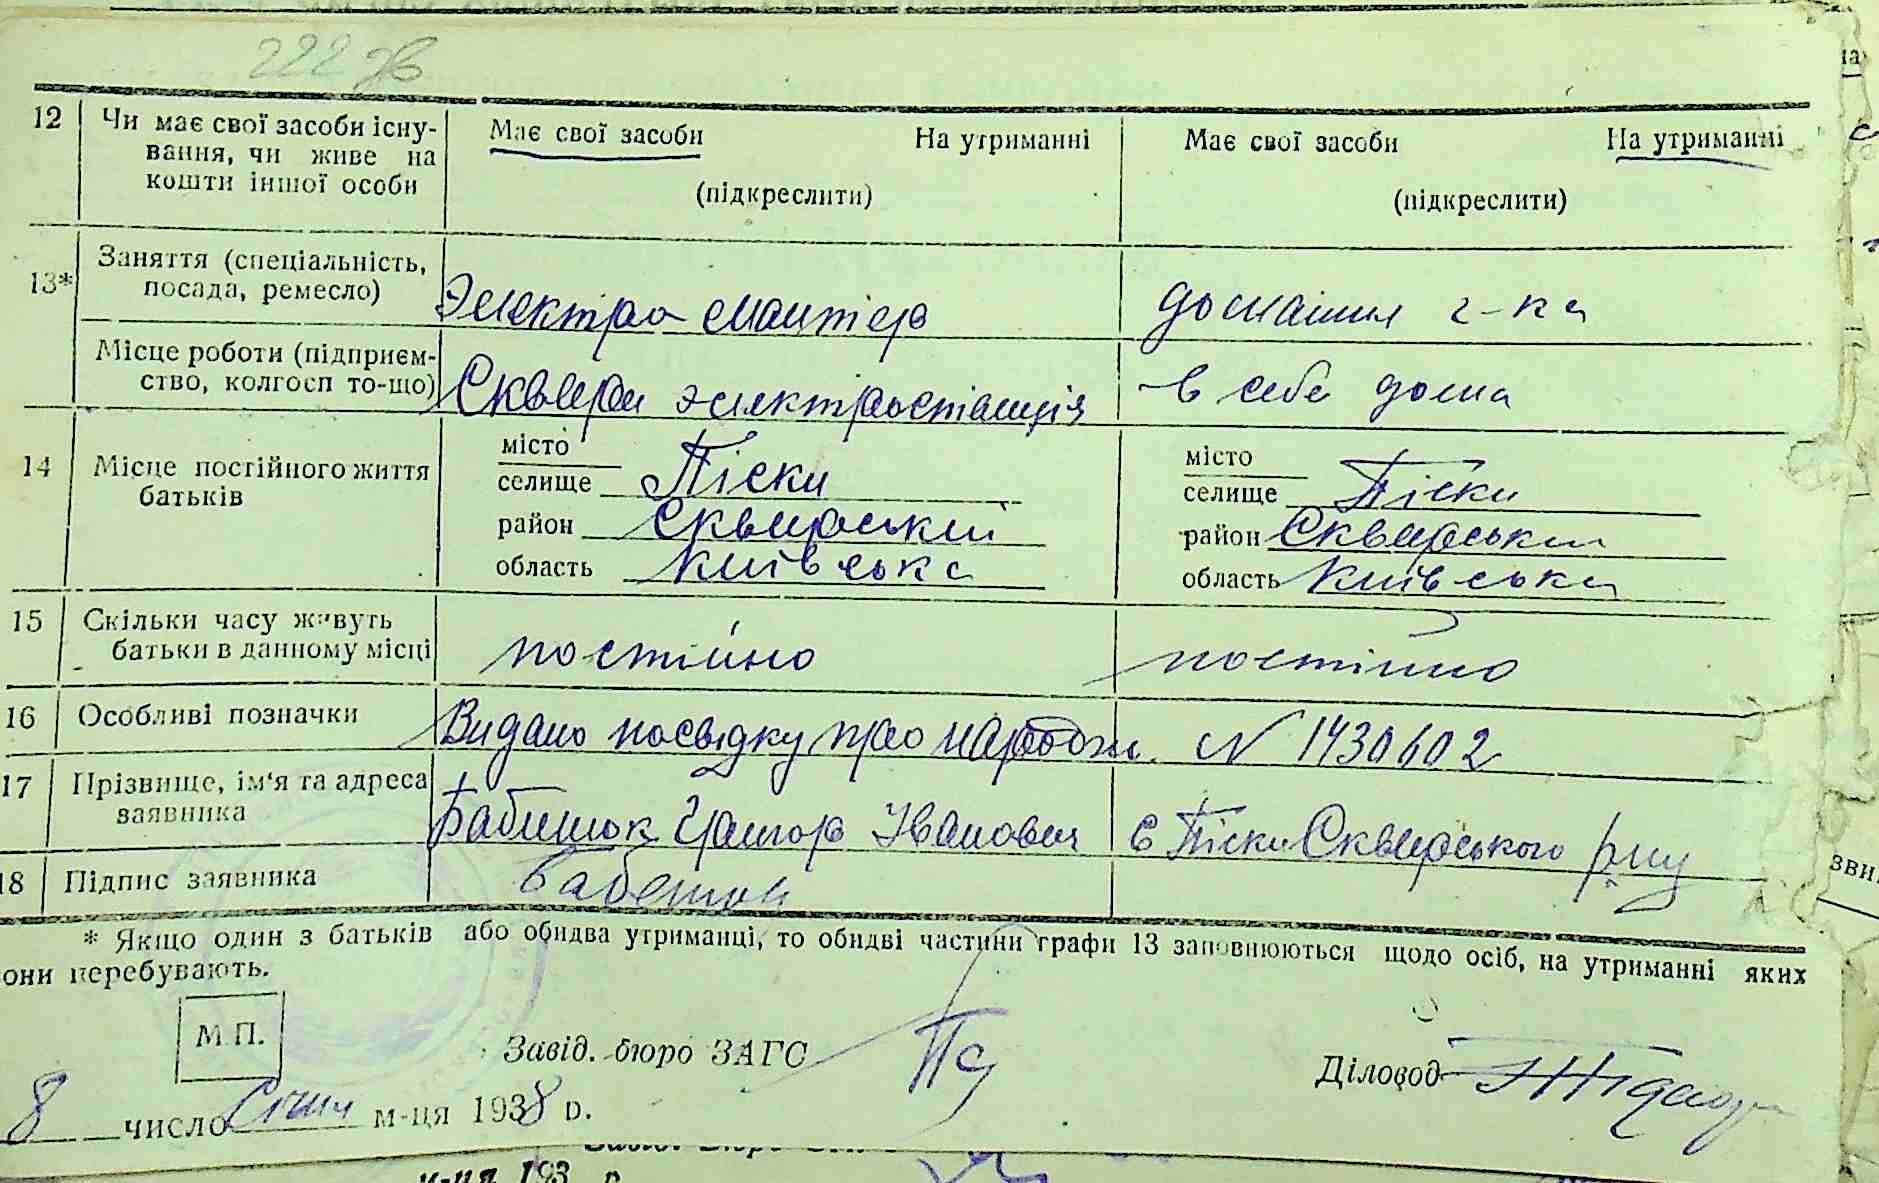 222 зв
12 Чи має свої засоби існу-
вання, чи живе на
кошти іншої особи
Має свої засоби На утриманні
(підкреслити)
Має свої засоби На утриманні
(підкреслити)
13* Заняття (спеціальність,
посада, ремесло)
Электро монтіор
домашня г-ка
Місце роботи (підприєм-
ство, колгосп то-що)
Сквири электростанція
в себе дома
14 Місце постійного життя
батьків
місто
селище Піски
район Сквирський
область Київська
місто
селище Піски
район Сквирський
область Київська
15 Скільки часу живуть
батьки в данному місці
постійно
постійно
16 Особливі позначки
Видано посвідку про народж. N 1430602
17 Прізвище, ім'я та адреса
заявника
Бабишок Григор Іванович с Піски Сквирського р-ну
18 Підпис заявника
* Якщо один з батьків або обидва утриманці, то обидві частини графи 13 заповнюються щодо осіб, на утриманні яких
они перебувають.
М.П.
Завід. бюро ЗАГС
Діловод
8 число Січня м-ця 1938 р.
м-ця 193 р.